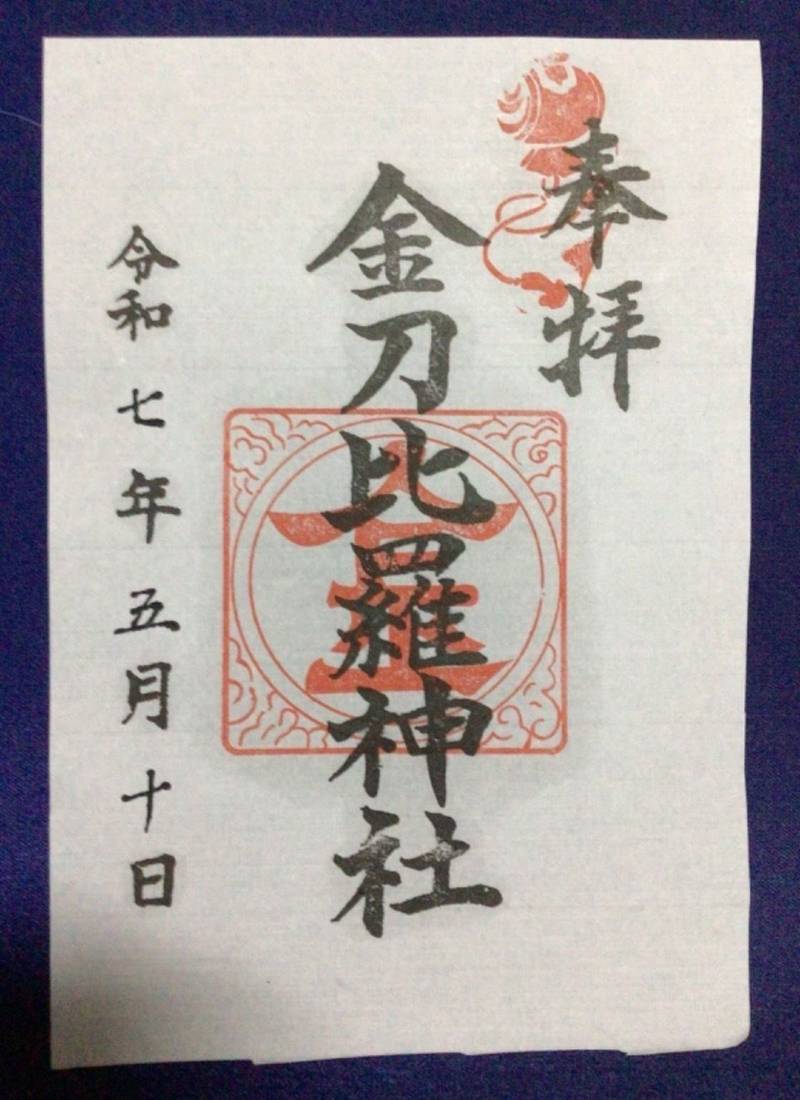 奉拝
金刀比羅神社
令和七年五月十日